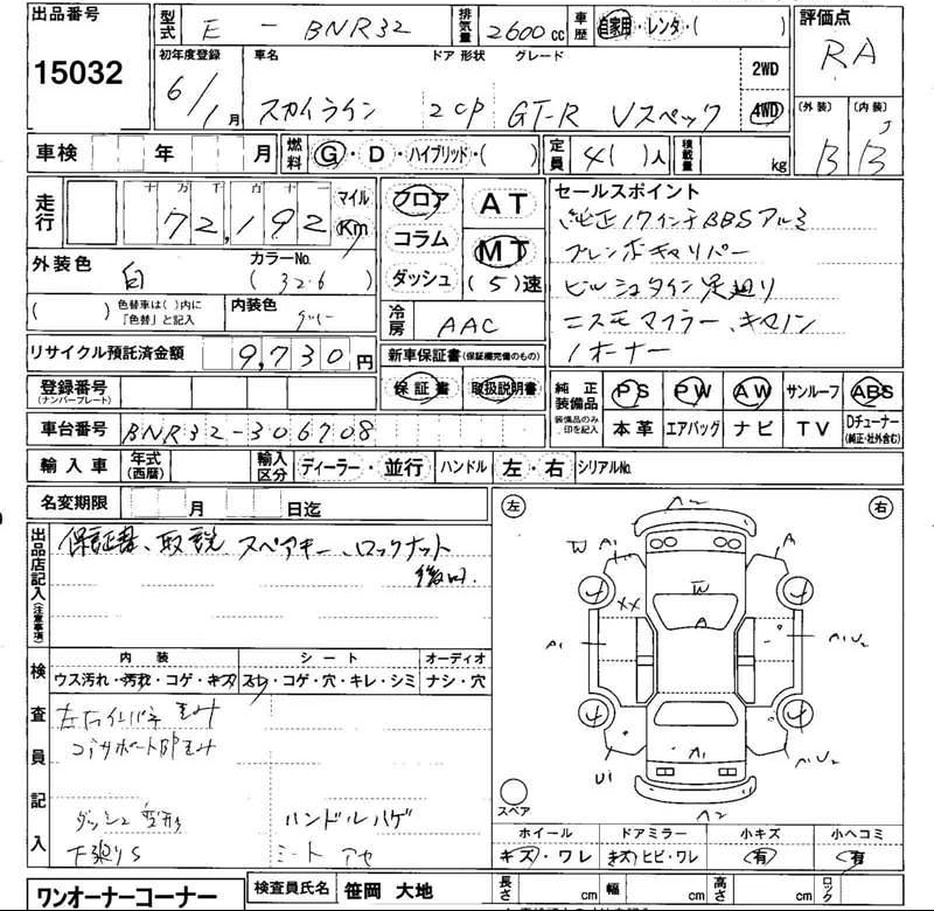 出品番号 型式 E - BNR32 排気量 2600cc 車歴 自家用・レンタ・( ) 評価点
15032 RA
初年度登録 車名 ドア 形状 グレード 2WD
6/1月 スカイライン 2 CP GT-R Vスペック 4WD
(外装) (内装)
B B
車検 年 月 燃料 G・D・ハイブリッド・( ) 定員 4( )人 積載量 kg
走行 十 万 千 百 十 一 マイル
72,192 Km
フロア AT
コラム MT
ダッシュ (5)速
セールスポイント
純正17インチBBSアルミ
ブレンボキャリパー
ビルシュタイン足廻り
ニスモマフラー、キャノン
1オーナー
外装色 白 カラーNo. (326)
( ) 色替車は( )内に「色替」と記入 内装色
冷房 AAC
リサイクル預託済金額 9,730円
新車保証書(保証欄完備のもの)
保証書 取扱説明書
登録番号(ナンバープレート)
純正装備品 PS PW AW サンルーフ ABS
装備品のみ印を記入 本革 エアバッグ ナビ TV Dチューナー(純正・社外含む)
車台番号 BNR32-306708
輸入車 年式(西暦) 輸入区分 ディーラー・並行 ハンドル 左・右 シリアルNo.
名変期限 月 日迄
出品店記入(注意事項)
保証書、取説、スペアキー、ロックナット
後日.
左 右
A2
W A1 A
XX W
A
A1 A1U2
A1
U1 A1U2
スペア
A2
検査員記入
内装 シート オーディオ
ウス汚れ・汚れ・コゲ・キズ スレ・コゲ・穴・キレ・シミ ナシ・穴
左右インパネ 歪み
コアサポート部歪み
ダッシュ 変形 ハンドルハゲ
下廻りS シート
ホイール ドアミラー 小キズ 小ヘコミ
キズ・ワレ キズ・ヒビ・ワレ 有 有
ワンオーナーコーナー 検査員氏名 笹岡 大地 長さ cm 幅 cm 高さ cm ロック